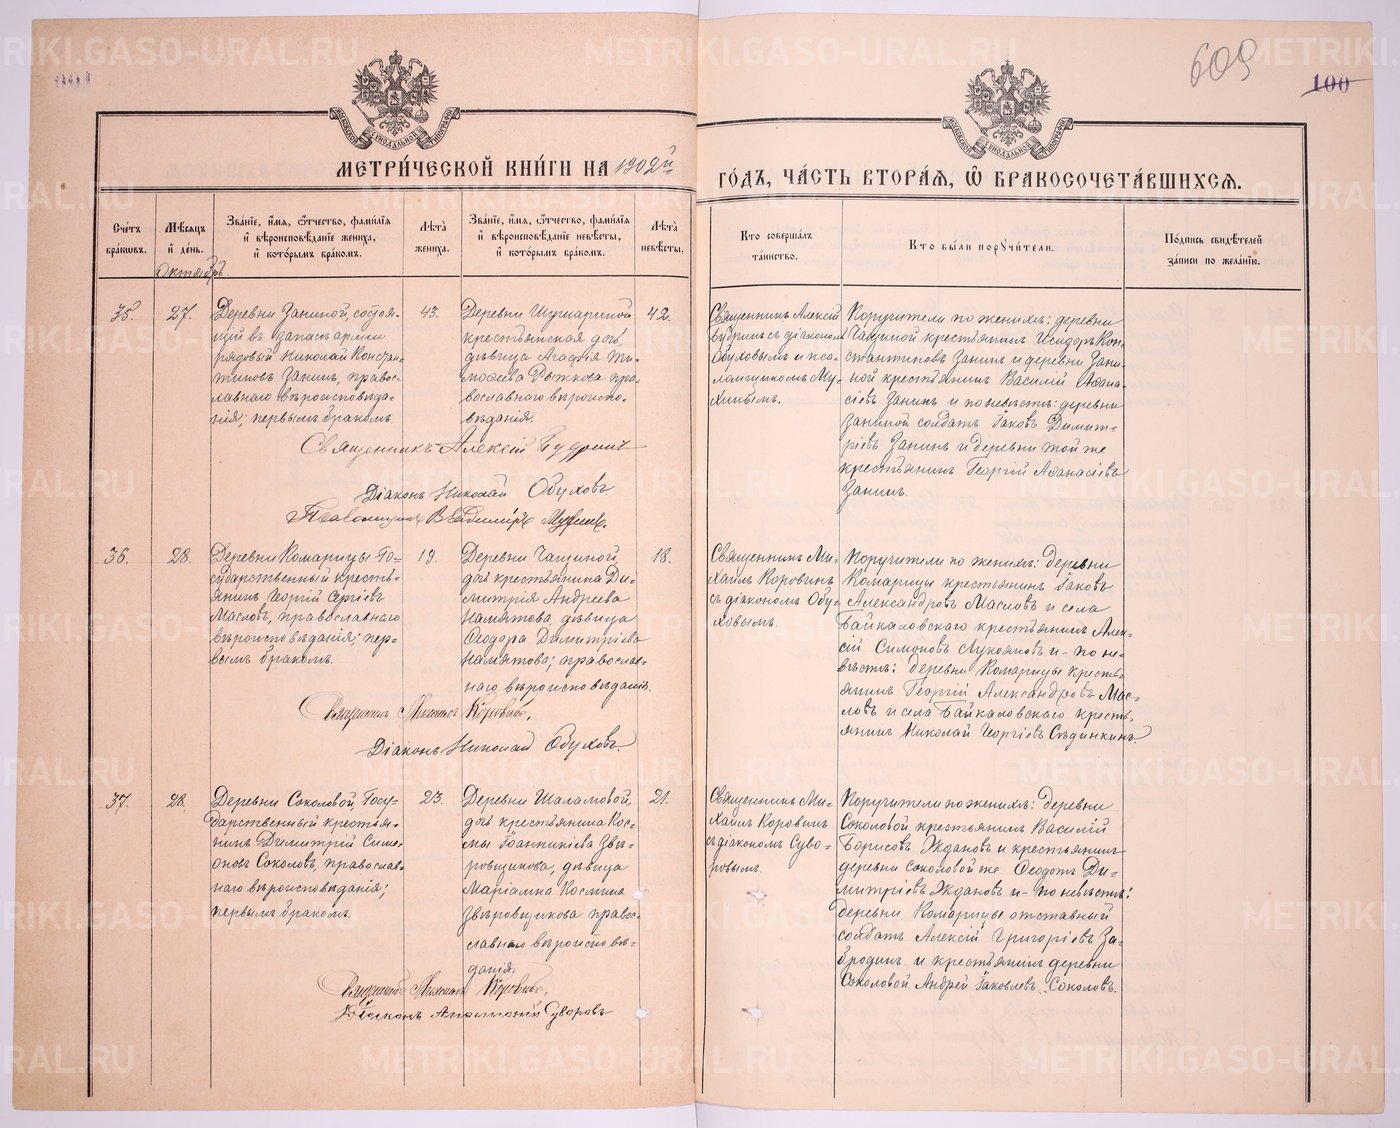 609
100
МЕТРИ́ЧЕСКОЙ КНИ́ГИ НА 1902й
ГО́ДЪ, ЧА́СТЬ ВТОРА́Я, Ѽ БРАКОСОЧЕТА́ВШИХСЯ.
Сче́тъ бра́ковъ.
Мѣ́сяцъ и҆ де́нь.
Зва́нїе, и҆́мя, ѻ҆́тчество, фами́лїя и҆ вѣроисповѣ́данїе жениха̀, и҆ кото́рымъ бра́комъ.
Лѣ́та жениха̀.
Зва́нїе, и҆́мя, ѻ҆́тчество, фами́лїя и҆ вѣроисповѣ́данїе невѣ́сты, и҆ кото́рымъ бра́комъ.
Лѣ́та невѣ́сты.
Кто соверша́лъ та́инство.
Кто бы́ли порꙋчи́тели.
По́дпись свидѣ́телей за́писи по жела́нїю.
Октябрь
35.
27.
Деревни Заниной, состоя-
щій въ запасѣ арміи
рядовый Николай Констан-
тиновъ Занинъ, право-
славнаго вѣроисповѣда-
нія; первымъ бракомъ.
43.
Деревни Шушариной
крестьянская дочь,
дѣвица Агафія Ти-
моѳеева Рыжкова пра-
вославнаго вѣроиспо-
вѣданія.
42.
Священникъ Алексій Будринъ
Діаконъ Николай Обуховъ
Псаломщикъ Владиміръ Мухинъ.
Священникъ Алексій
Будринъ съ діакономъ
Обуховымъ и пса-
ломщикомъ Му-
хинымъ.
Поручители по женихѣ: деревни
Чащиной крестьянинъ Исидоръ Кон-
стантиновъ Занинъ и деревни Зани-
ной крестьянинъ Василій Аѳана-
сіевъ Занинъ и по невѣстѣ: деревни
Заниной солдатъ Іаковъ Димит-
ріевъ Занинъ и деревни той же
крестьянинъ Георгій Аѳанасіевъ
Занинъ.
36.
28.
Деревни Комарицы Го-
сударственный кресть-
янинъ Георгій Сергіевъ
Масловъ, православнаго
вѣроисповѣданія; пер-
вымъ бракомъ.
19.
Деревни Чащиной
дочь крестьянина Ди-
митрія Андреева
Намятова, дѣвица
Ѳеодора Димитріева
Намятова; православ-
наго вѣроисповѣданія.
18.
Священникъ Михаилъ Коровинъ,
Діаконъ Николай Обуховъ.
Священникъ Ми-
хаилъ Коровинъ
съ діакономъ Обу-
ховымъ.
Поручители по женихѣ: деревни
Комарицы крестьянинъ Іаковъ
Александровъ Масловъ и села
Байкаловскаго крестьянинъ Алек-
сій Симоновъ Лукояновъ и - по не-
вѣстѣ: деревни Комарицы кресть-
янинъ Георгій Александровъ Мас-
ловъ и села Байкаловскаго кресть-
янинъ Николай Георгіевъ Сѣдинкинъ.
37.
28.
Деревни Соколовой, Госу-
дарственный крестья-
нинъ Димитрій Симе-
оновъ Соколовъ, православ-
наго вѣроисповѣданія;
первымъ бракомъ.
23.
Деревни Шаламовой,
дочь крестьянина Кос-
мы Іоанникіева Звѣ-
ровщикова, дѣвица
Маріамна Космина
Звѣровщикова право-
славнаго вѣроисповѣ-
данія.
21.
Священникъ Михаилъ Коровинъ,
Діаконъ Анатолій Суворовъ
Священникъ Ми-
хаилъ Коровинъ
съ діакономъ Суво-
ровымъ.
Поручители по женихѣ: деревни
Соколовой крестьянинъ Василій
Борисовъ Ждановъ и крестьянинъ
деревни Соколовой же Ѳеодотъ Ди-
митріевъ Ждановъ и - по невѣстѣ:
деревни Комарицы отставный
солдатъ Алексій Григоріевъ За-
бродинъ и крестьянинъ деревни
Соколовой Андрей Іаковлевъ Соколовъ.